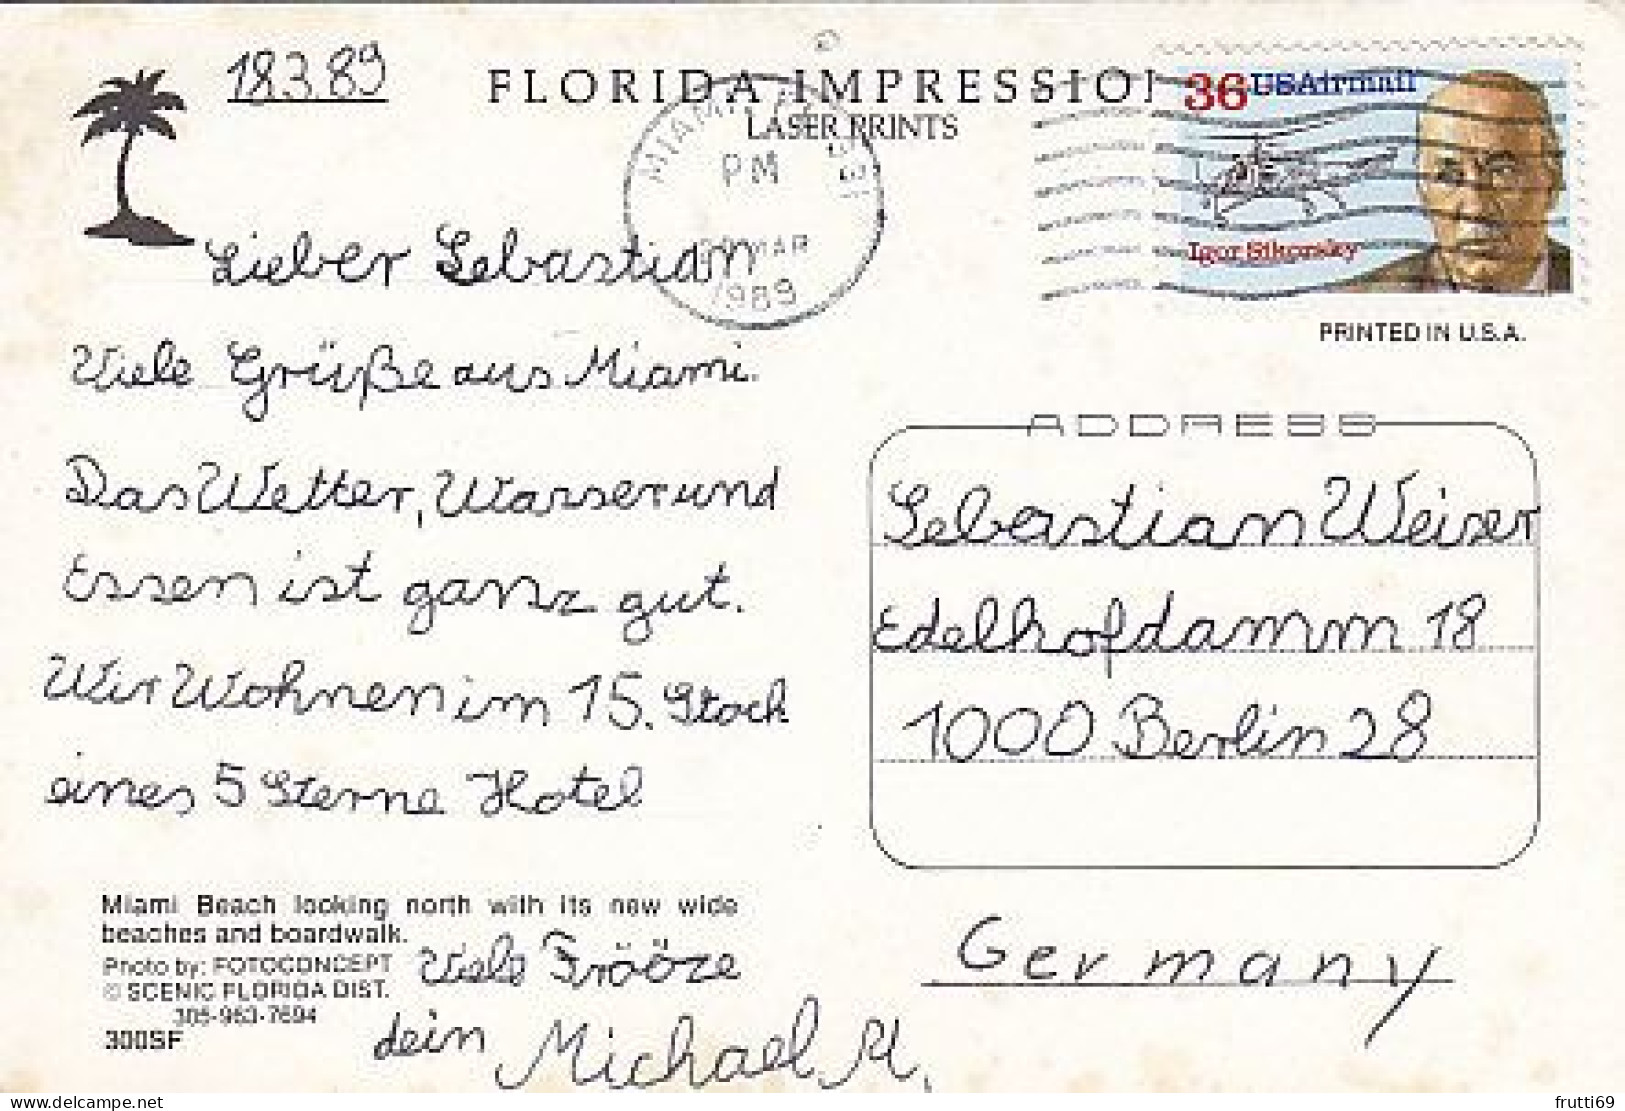 18.3.89
FLORIDA IMPRESSIO
LASER PRINTS
36 USAirmail
Igor Sikorsky
MIAMI
PM
MAR
1989
PRINTED IN U.S.A.
Lieber Sebastian
Viele Grüße aus Miami.
Das Wetter, Wasser und
Essen ist ganz gut.
Wir Wohnen im 15. Stock
eines 5 Sterne Hotel
ADDRESS
Sebastian Weiser
Edelhofdamm 18
1000 Berlin 28
Germany
Miami Beach looking north with its new wide
beaches and boardwalk.
Photo by: FOTOCONCEPT
© SCENIC FLORIDA DIST.
305-963-7694
300SF
Viele Frööze
dein Michael M.
frutti69
delcampe.net